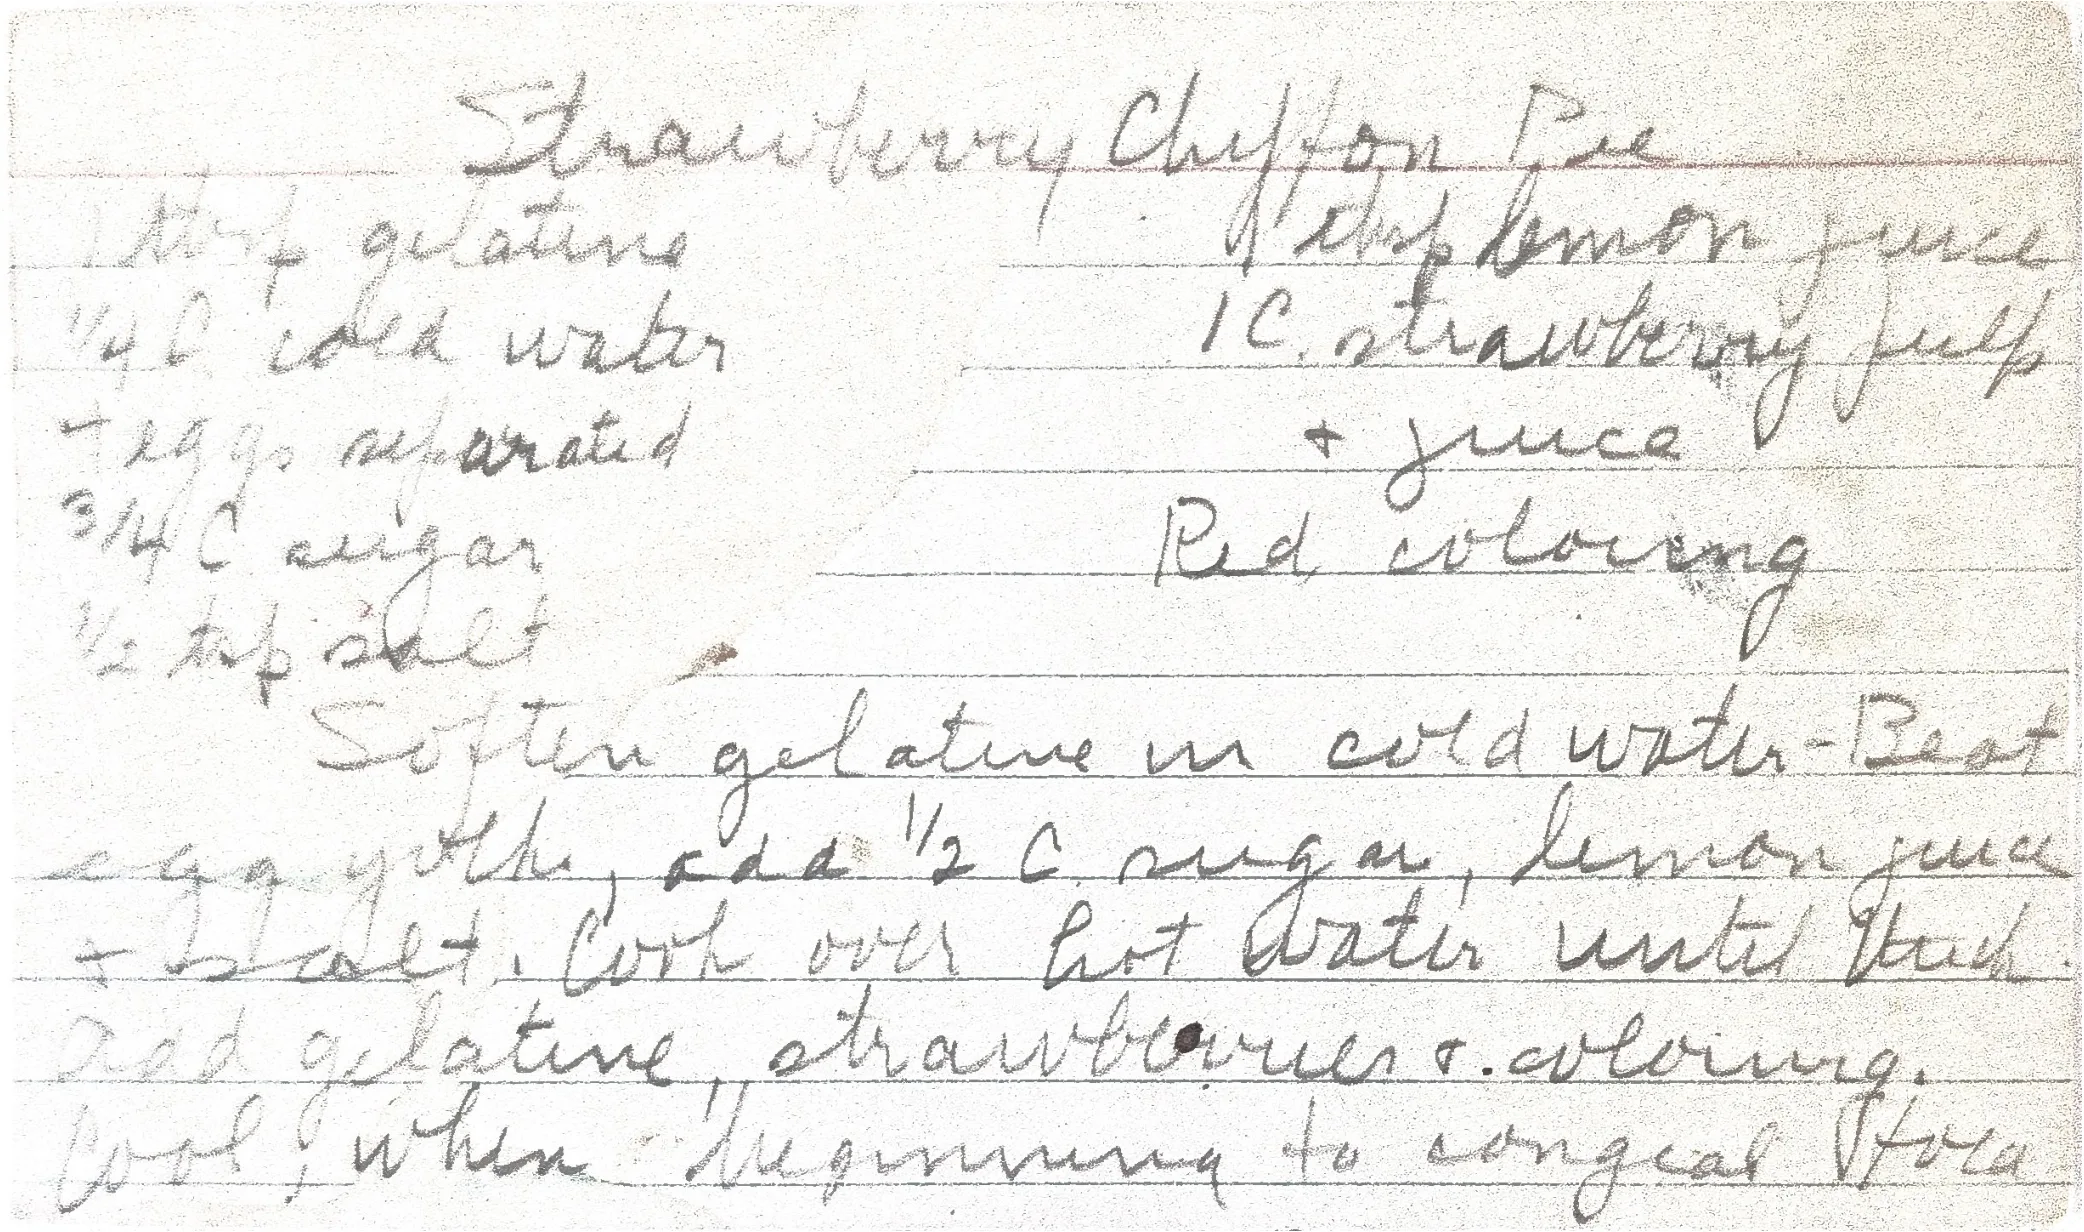 Strawberry Chiffon Pie
1 tbsp gelatine
1/4 C cold water
4 eggs separated
3/4 C sugar
1/2 tsp salt
1 tbsp lemon juice
1 C. strawberry pulp
+ juice
Red coloring
Soften gelatine in cold water - Beat
egg yolks, add 1/2 C sugar, lemon juice
+ salt. Cook over hot water until thick.
Add gelatine, strawberries + coloring.
Cool, when beginning to congeal fold